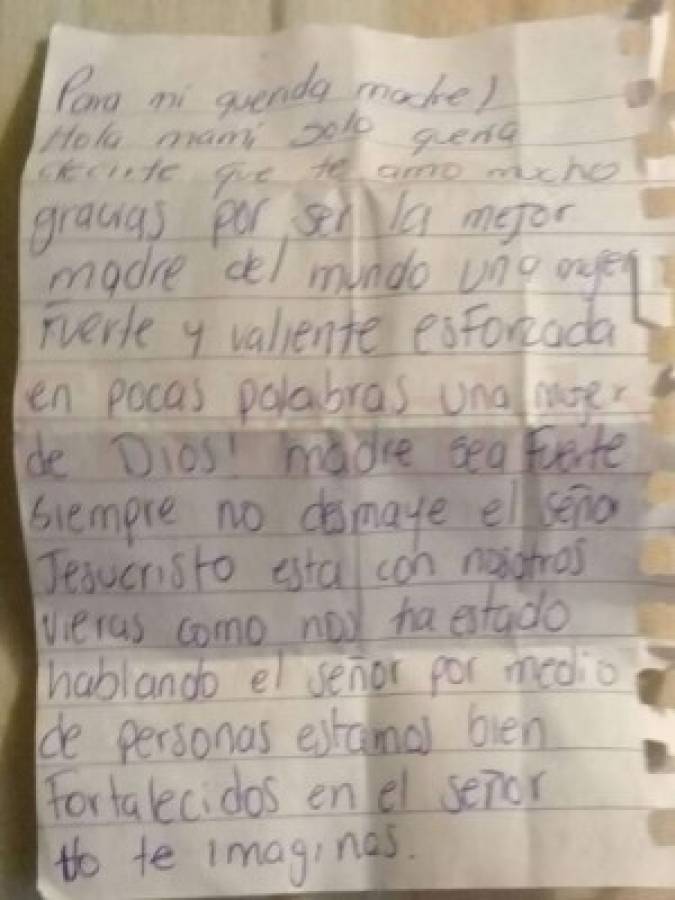 Para mi querida madre)
Hola mami solo queria
decirte que te amo mucho
gracias por ser la mejor
madre del mundo una mujer
Fuerte y valiente esforzada
en pocas palabras una mujer
de Dios! madre sea Fuerte
siempre no desmaye el señor
Jesucristo esta con nosotros
vieras como nos ha estado
hablando el señor por medio
de personas estamos bien
Fortalecidos en el señor
No te imaginas.